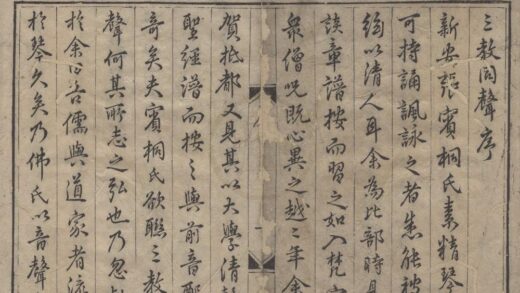 三教同聲序
新安張賓桐氏素精琴
可持誦諷詠之者悉能被
絢以清人耳余為比部時見
談章譜按而習之如入梵
衆僧咒既心異之越二年余
賀抵都又見其以大學清
聖經譜而按之與前音
奇矣夫賓桐氏欲聯三教
聲何其所志之弘也乃忽
於余曰吾儒與道家者流
於琴久矣乃佛氏以音聲